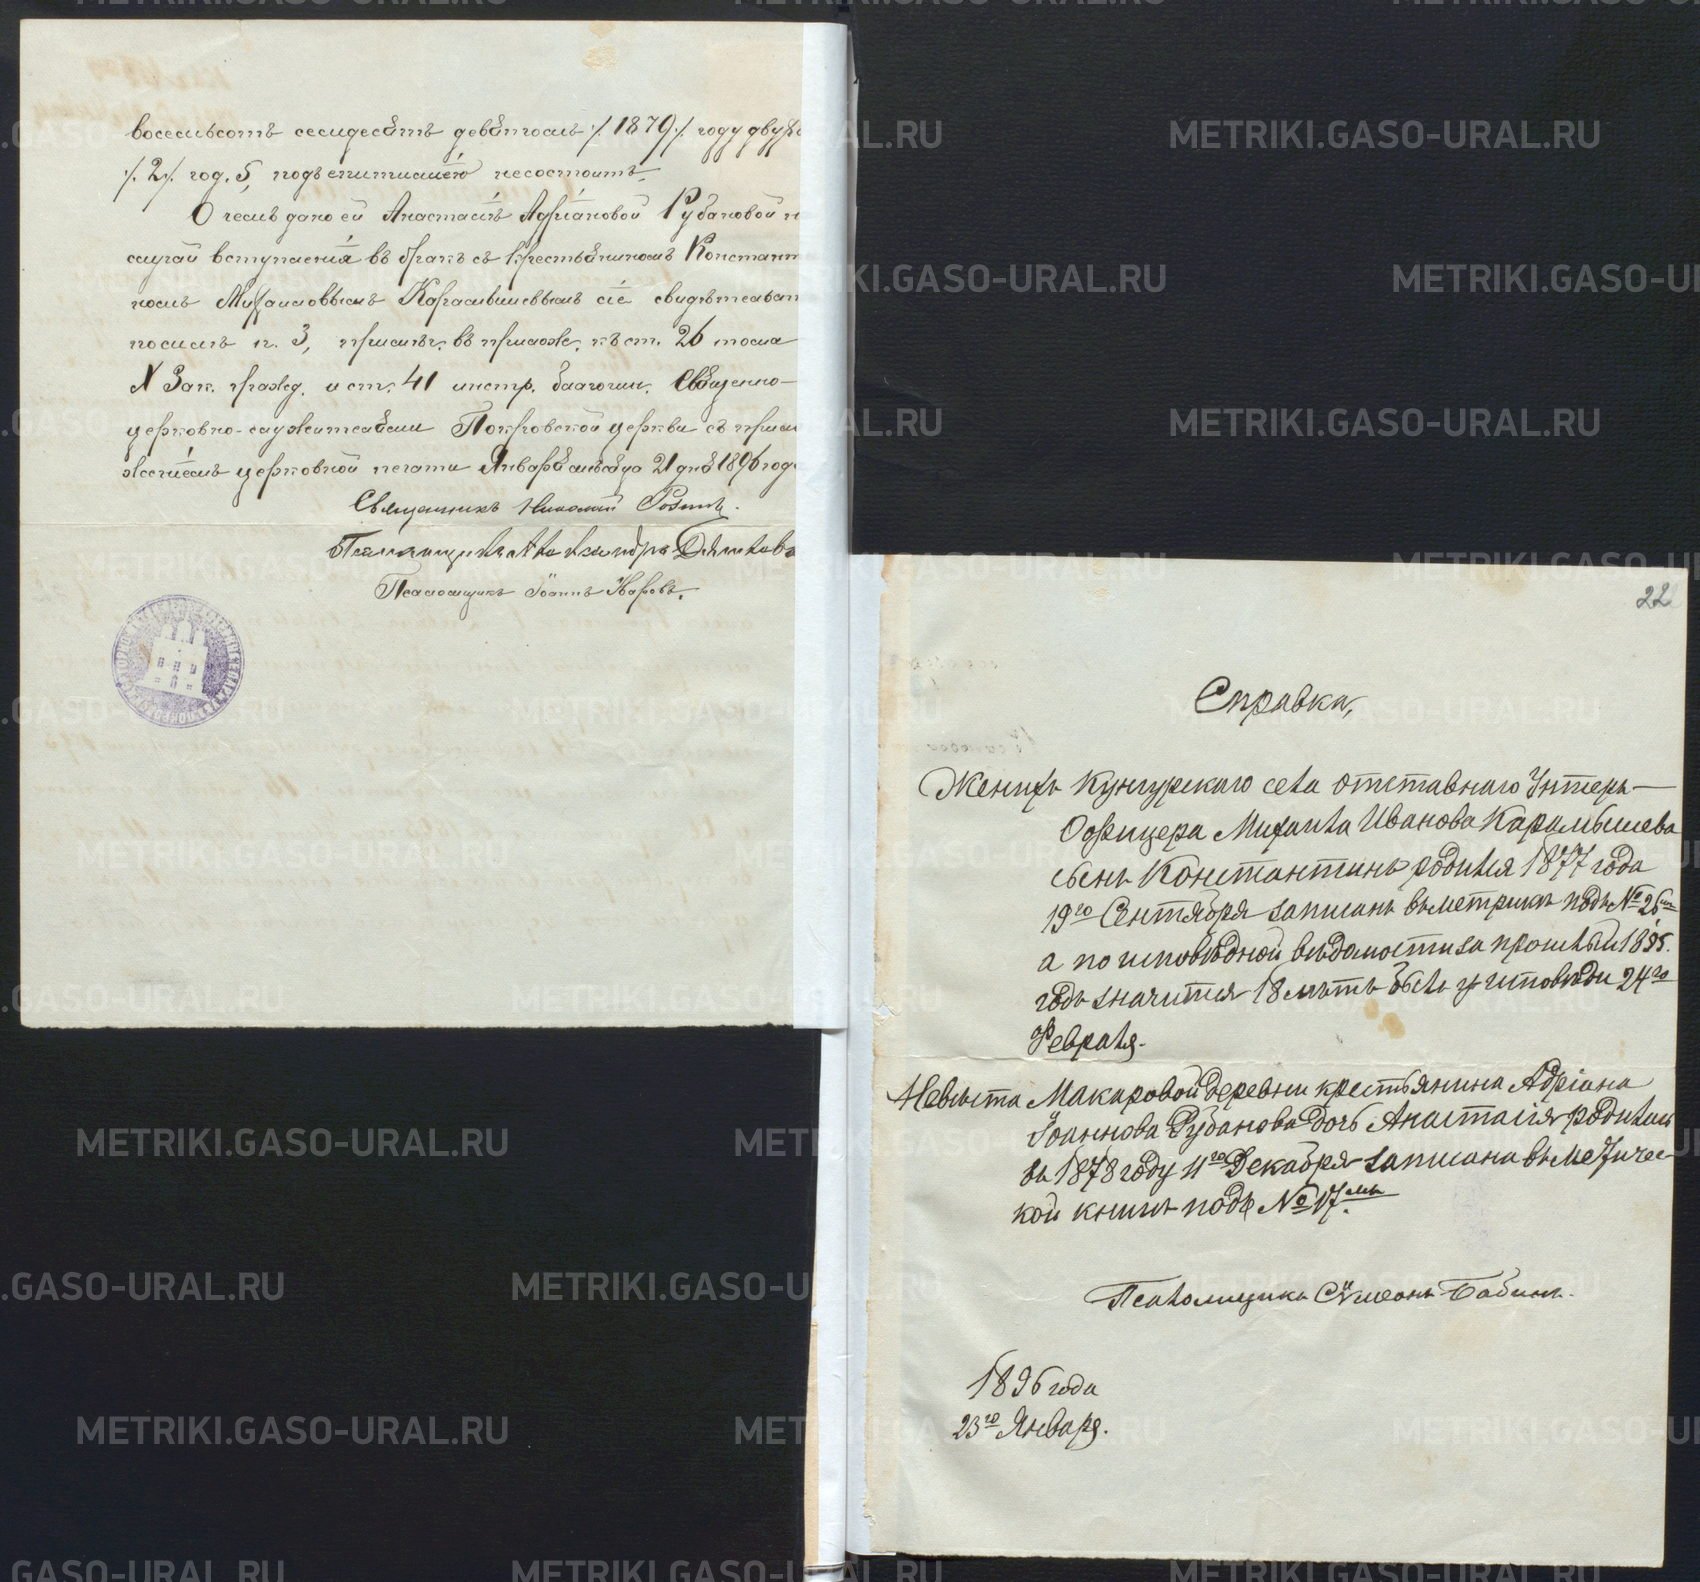 восемьсотъ семидесять девятомъ /1879/ году двухъ
/2/ год. 5, подъ епитиміею несостоитъ.
О чемъ дано ей Анастасіѣ Адріановой Рубановой н
случай вступленія въ бракъ съ крестьяниномъ Констант
номъ Михаиловымъ Карамышевымъ сіе свидѣтельст
посилѣ п. 3, примѣч. въ прилож. къ ст. 26 тома
X Зак. гражд. и ст. 41 инстр. благочин. Священно-
церковно-служителями Покровской церкви съ прило
женіемъ церковной печати Января мѣсяца 21 дня 1896 год
Священникъ Николай
Псаломщикъ Александръ
Псаломщикъ Іоаннъ
222
Справка,
Женихъ Кунгурскаго села отставнаго Унтеръ-
Офицера Михаила Иванова Карамышева
сынъ Константинъ родился 1877 года
19го Сентября записанъ въ метрикѣ подъ № 26мъ
а по исповѣдной вѣдомости за прошлый 1895.
годъ значится 18 лѣтъ былъ у исповѣди 24го
Февраля.
Невѣста Макаровой деревни крестьянина Адріана
Іоаннова Рубанова дочь Анастасія родилась
въ 1878 году 11го Декабря записана въ метричес-
кой книгѣ подъ № 17мъ.
Псаломщикъ Сѵмеонъ Бабинъ.
1896 года
23го Января.
METRIKI.GASO-URAL.RU